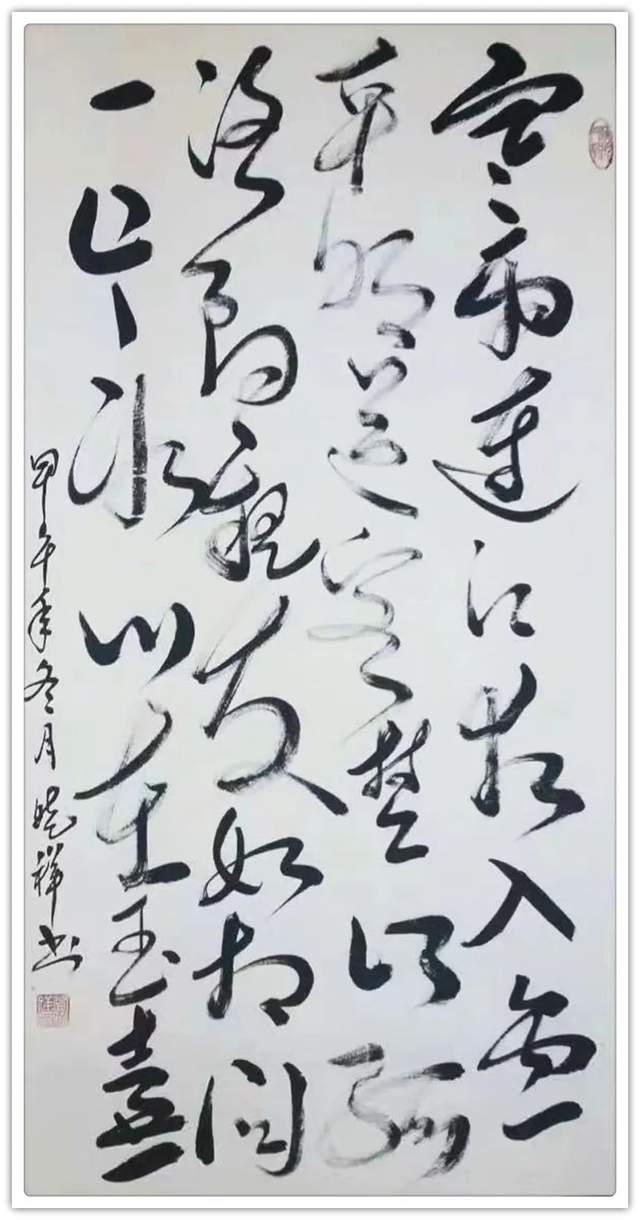 寒雨連江夜入吳
平明送客楚山孤
洛陽親友如相問
一片冰心在玉壺
甲午年冬月曉祥书